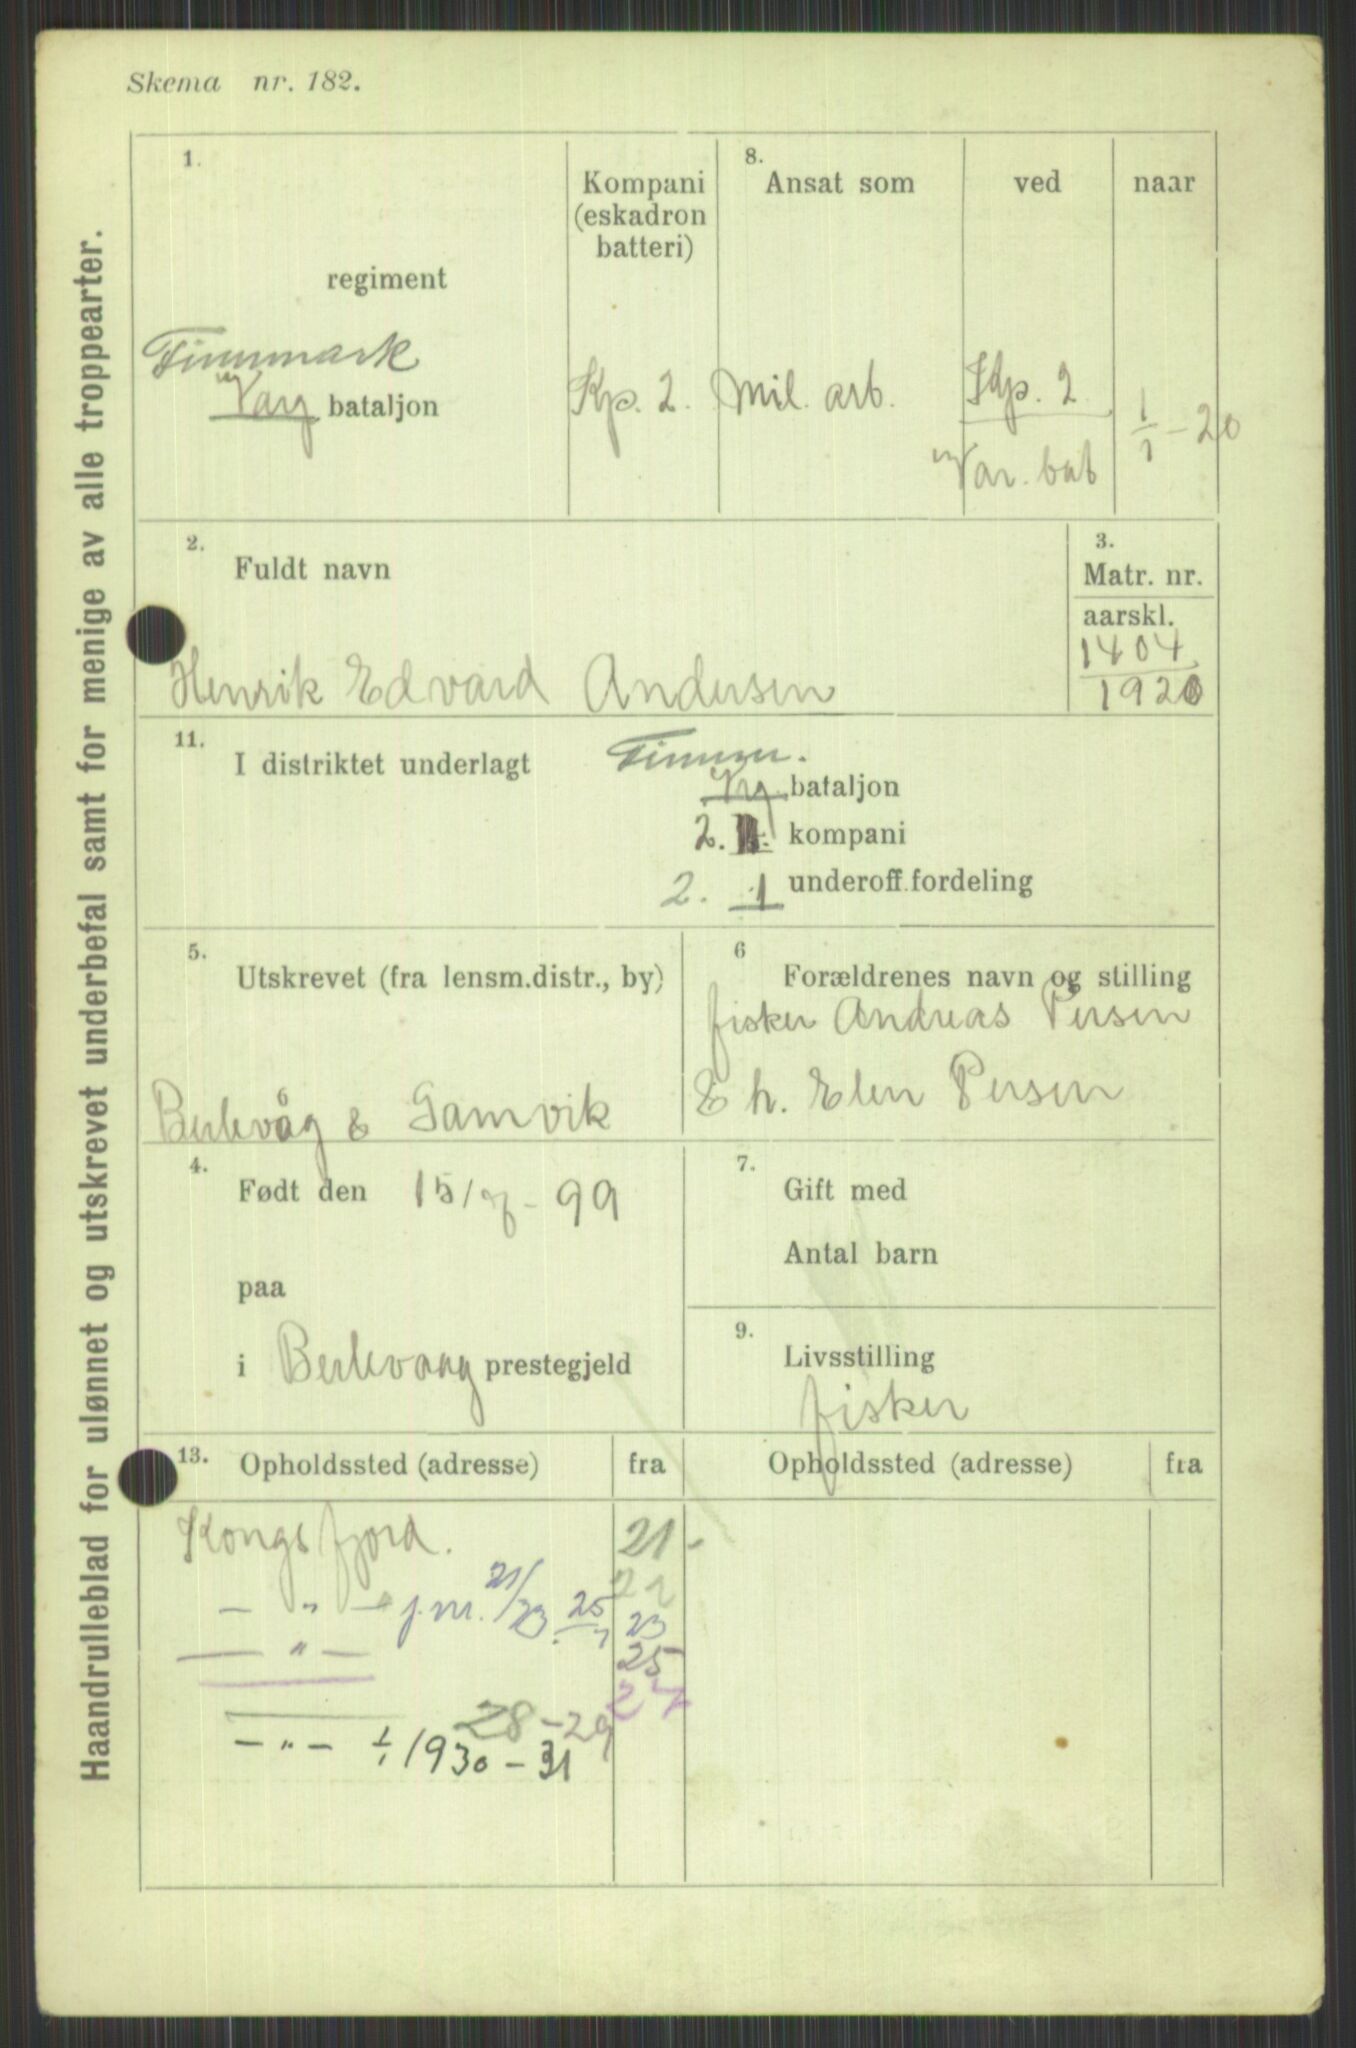 Skema nr. 182.
Haandrulleblad for ulønnet og utskrevet underbefal samt for menige av alle troppearter.
1.
regiment
Finnmark
Varg bataljon
Kompani
(eskadron
batteri)
Kp. 2.
8.
Ansat som
Mil. arb.
ved
Kp. 2
Var. bat
naar
1/1 - 20
2.
Fuldt navn
Henrik Edvard Andersen
3.
Matr. nr.
aarskl.
1404
1920
11.
I distriktet underlagt
Finnm.
Vrg. bataljon
2. kompani
2. 1 underoff.fordeling
5.
Utskrevet (fra lensm.distr., by)
Berlevåg & Gamvik
6
Forældrenes navn og stilling
fisker Andreas Persen
& h. Elen Persen
4.
Født den 15/7 - 99
paa
i Berlevaag prestegjeld
7.
Gift med
Antal barn
9.
Livsstilling
fisker
13.
Opholdssted (adresse) fra
Opholdssted (adresse) fra
Kongsfjord. 21
- " - j.nr. 21/23 25 22
23
- " - 25
27
28 - 29
- " - 1930 - 31